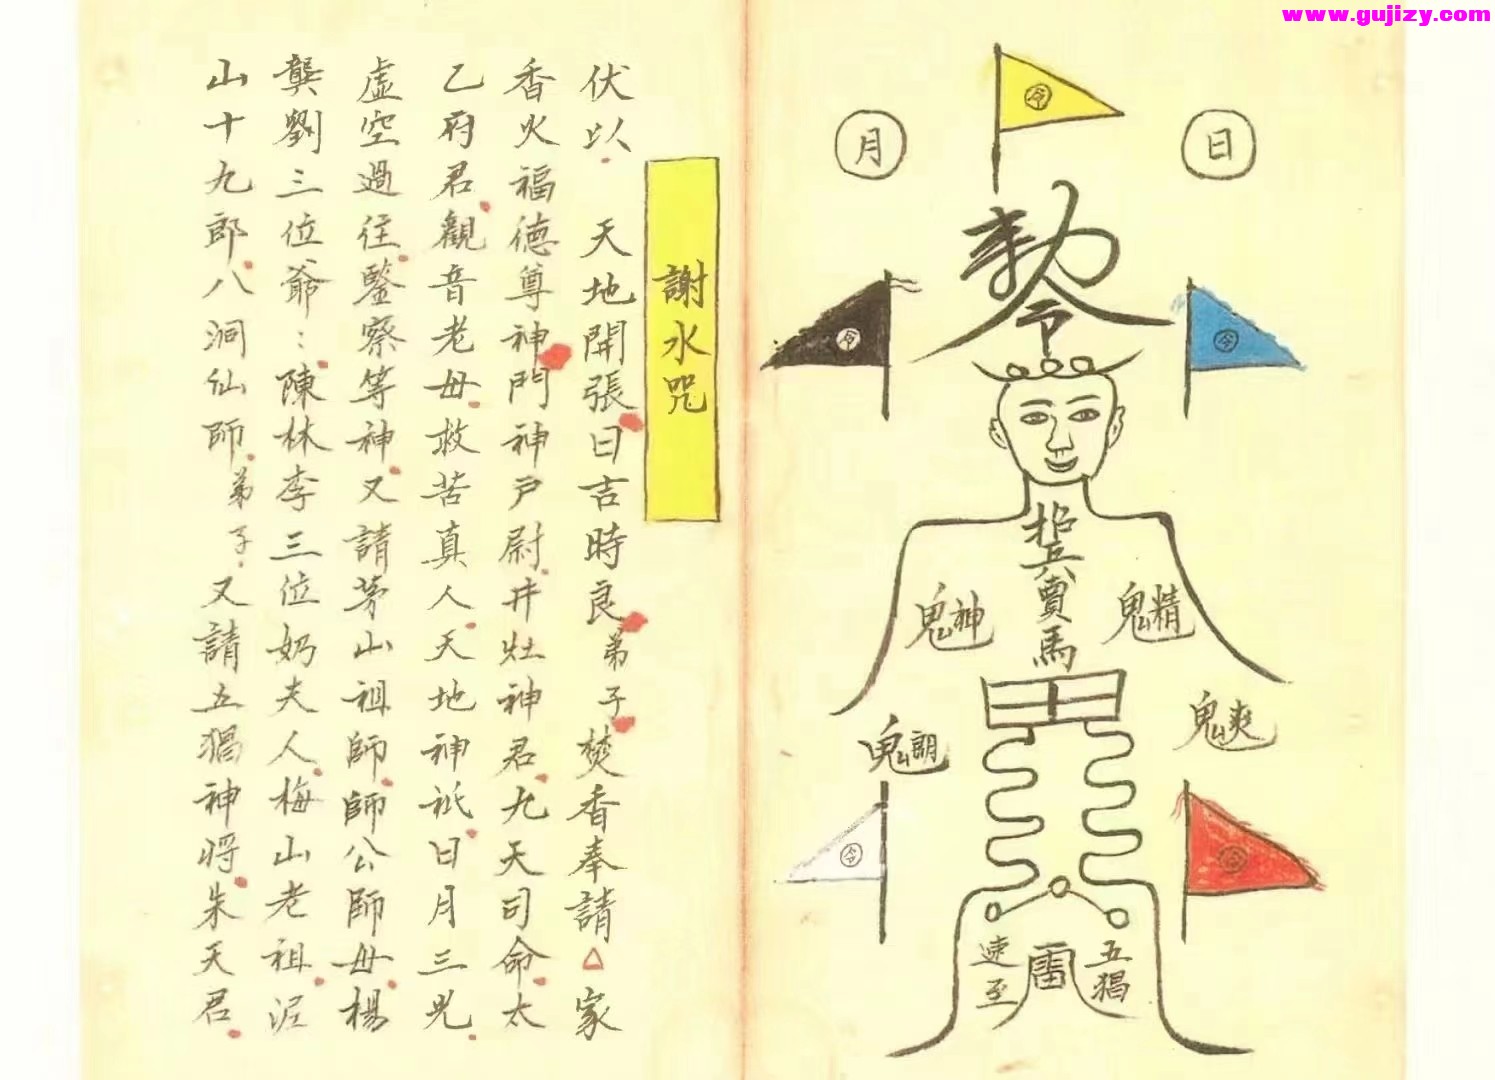 www.gujizy.com
日
月
令
令
令
令
令
敕令
招兵買馬
五猖
雷
速至
謝水咒
伏以 天地開張日吉時良弟子焚香奉請△家
香火福德尊神門神戶尉井灶神君九天司命太
乙府君觀音老母救苦真人天地神祇日月三光
虛空過往鑒察等神又請茅山祖師師公師母楊
龔劉三位爺:陳林李三位奶夫人梅山老祖泥
山十九郎八洞仙師弟子又請五猖神將朱天君